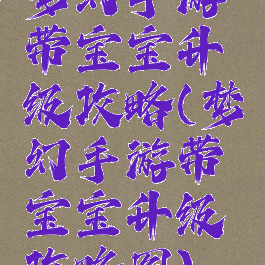 梦幻手游
带宝宝升
级攻略(梦
幻手游带
宝宝升级
攻略图)